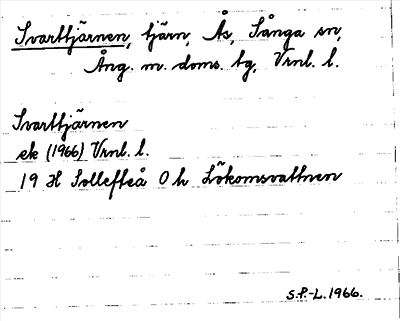 Svarttjärnen, tjärn, Ås, Sånga sn,
Ång. m. doms. tg, Vrnl. l.
Svarttjärnen
ek (1966) Vrnl. l.
19 H Sollefteå 0 h Lökomsvattnen
S.P.-L. 1966.